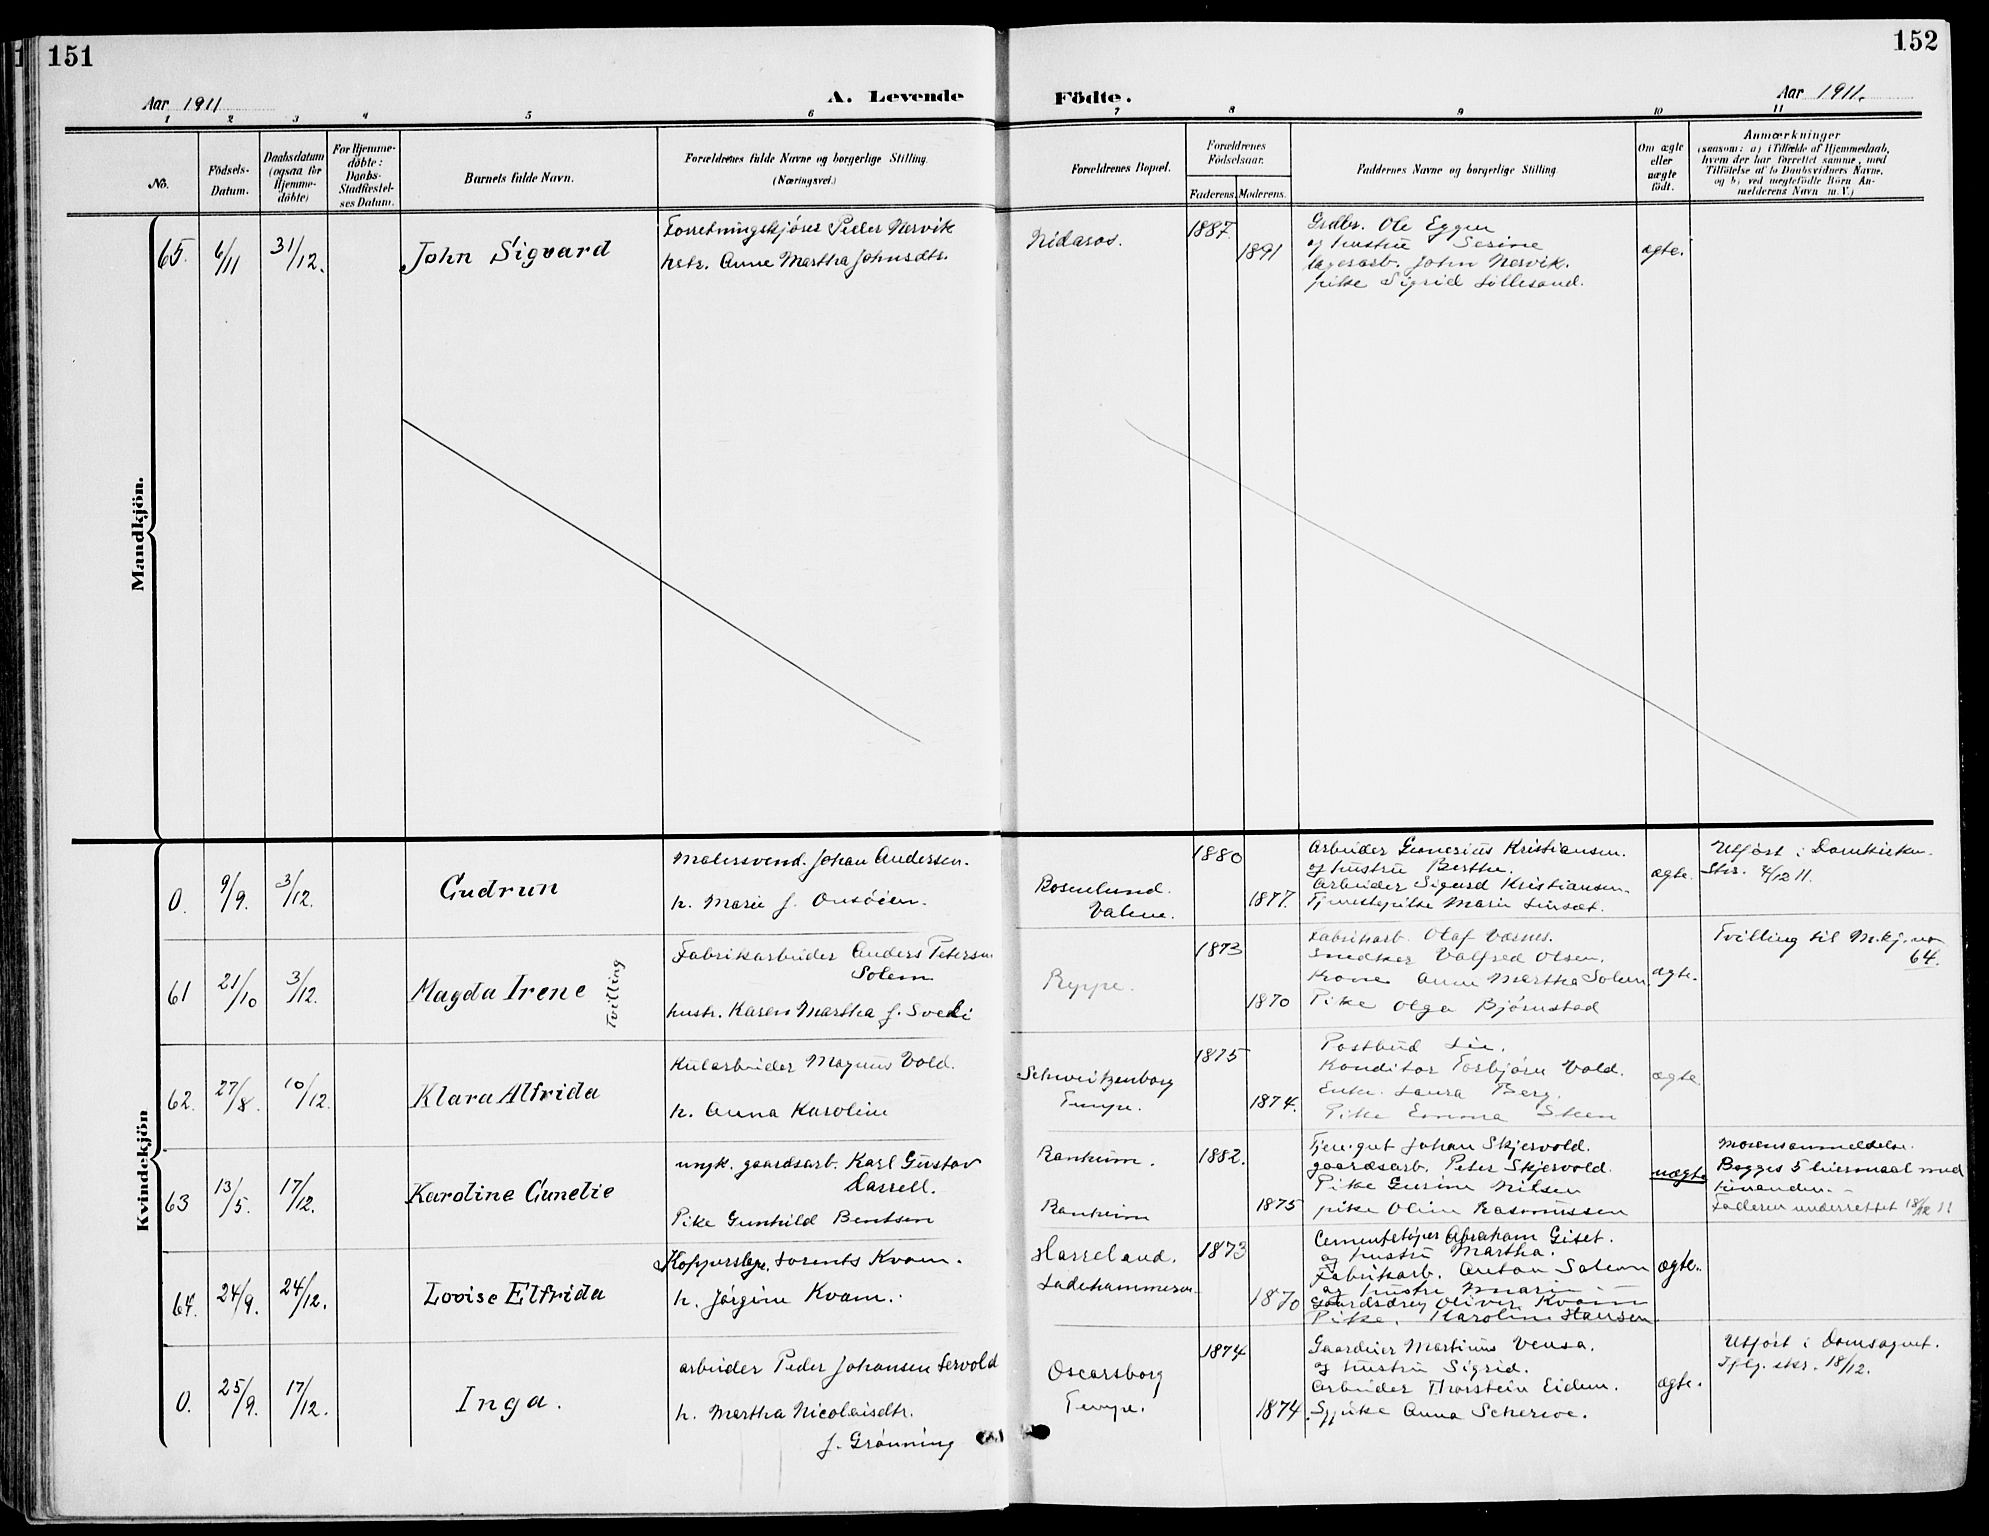 151
152
Aar 1911
A. Levende
Födte.
Aar 1911.
1 2 3 4 5 6 7 8 9 10 11
No.
Födsels-
Datum.
Daabsdatum
(ogsaa for
Hjemme-
döbte)
For Hjemme-
döbte:
Daabs-
Stadfæstel-
ses Datum.
Barnets fulde Navn.
Forældrenes fulde Navne og borgerlige Stilling.
(Næringsvei.)
Forældrenes Bopæl.
Forældrenes
Födselsaar.
Faderens. Moderens.
Faddernes Navne og borgerlige Stilling
Om ægte
eller
uægte
født.
Anmærkninger
(saasom: a) i Tilfælde af Hjemmedaab,
hvem der har forrettet samme, med
Tilföielse af to Daabsvidners Navne,
og b) ved uægtefödte Börn An-
melderens Navn m. V.)
Mandkjön.
65. 6/11 31/12.
John Sigvard
Forretningskjører Peder Nervik
hstr. Anne Martha Johnsdtr.
Nidaros.
1887.
1891
Grdbr. Ole Eggen
og hustru Serine
lagerarb. John Nervik.
pike Sigrid Lillesand.
ægte.
Kvindekjön
0. 9/9. 3/12.
Gudrun
Malersvend. Johan Andersen.
h. Marie f. Onsöien.
Rosenlund.
Valene.
1880
1877.
Arbeider Kristiansen.
og hustru Berthe.
Arbeider Sigurd Kristiansen.
Tjenestepike Marie
ægte.
Utført i Domkirken.
Skr. 4/12 11.
61 21/10 3/12.
Magda Irene
Tvilling
Fabrikarbeider Anders Petersen
Solem
hustr. Karen Martha f. Svedi
Reppe.
1873
1870
Fabrikarb. Olaf Værnes.
Snedker Valfred Olsen.
Kone Anne Martha Solem
Pike Olga Bjørnstad
ægte.
Tvilling til M.kj. no
64.
62. 27/8. 10/12.
Klara Alfrida
Kularbeider Magnus Vold.
h. Anna Karoline
Schweitzenborg
Tempe.
1875
1874.
Postbud Lie.
Konditor Torbjørn Vold.
Enke. Laura Berg.
Pike Emma Steen
ægte.
63 13/5. 17/12.
Karoline Gunelie
ungk. gaardsarb. Karl Gustav
Darrell.
Pike Gunhild Bentsen
Ranheim.
Ranheim
1882.
1875
Tjen.gut Johan Skjervold.
gaardsarb. Peter Skjervold.
Pike Gurine Nilsen
pike Oline Rasmussen
uægte
Morensanmeldelse.
Begges 5 leiermaal med
hinanden.
Faderen underrettet 18/12 11
64. 24/9. 24/12.
Lovise Elfrida
Koppersl. Lorents Kvam.
h. Jörgine Kvam.
Harreland.
Ladehammeren
1873
1870
Cementstøper Abraham Giset.
og hustru Martha.
Fabrikarb. Anton Solem
og hustru Marie
Gaardsdreng Oliver Kvam
Pike. Karoline Hansen.
ægte.
0. 25/9. 17/12.
Inga.
arbeider Peder Johansen Lervold
h. Martha Nicolaisdtr.
f. Grönning
Oscarsborg
Tempe.
1874
1874.
Gaardeier Martinus Vensa.
og hustru Sigrid.
Arbeider Thorstein Eidem.
Spike Anna Scherve.
ægte.
Utført i Domsognet.
Iflg. skr. 18/12.